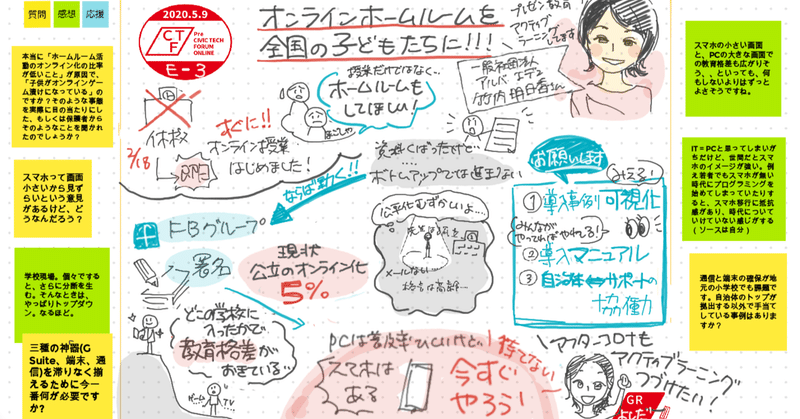 質問
感想
応援
本当に「ホームルーム活
動のオンライン化の比率
が低いこと」が原因で、
「子供がオンラインゲー
ム漬けになっている」の
ですか？そのような事態
を実際に目の当たりにし
た、もしくは保護者から
そのようなことを聞かれ
たのでしょうか？
スマホって画面
小さいから見ず
らいという意見
があるけど、ど
うなんだろう？
学校現場。個々でする
と、さらに分断を生
む。そんなときは、
やっぱりトップダウ
ン。なるほど。
三種の神器(G
Suite、端末、通
信)を滞りなく揃
えるために今一
番何が必要です
か？
2020.5.9
CTF
Pre
CIVIC TECH
FORUM
ONLINE
E-3
オンラインホームルームを
全国の子どもたちに!!!
プレゼン教育
アクティブ
ラーニング
してます
一般社団法人
アルバ・エデュ
竹内明日香さん
授業だけではなく…
ホームルームも
してほしい!
休校
2/18
すぐに!!
オンライン授業
はじめました!
資料くばったけど…
ボトムアップでは進まない
ならば動く!!
FBグループ
署名
現状
公立のオンライン化
5%
公平化むずかしいよ…
メールなもん
どこの学校に
入ったかで
教育格差が
おきている…
ゲーム
TV
お願いします
みえる!
①導入事例可視化
みんなが
やってればやれてる!
②導入マニュアル
③自治体⇔サポートの
協働力
PCは普及率ひくいけど…
持ってない
スマホは
ある
今すぐ
やろう!
アフターコロナも
アクティブラーニング
つづけたい!
GR
スマホの小さい画面
と、PCの大きな画面で
の教育格差も広がりそ
う、、といっても、何も
しないよりはずっと
よさそうですね。
IT＝PCと思ってしまいが
ちだけど、世間だとスマ
ホのイメージが強い。例
え若者でもスマホが無い
時代にプログラミングを
始めてしまっていたりす
ると、スマホ移行に抵抗
感があり、時代について
いけていない感じがする
(ソースは自分)
通信と端末の確保が地
元の小学校でも課題で
す。自治体のトップが
拠出する以外で手当て
している事例はありま
すか？